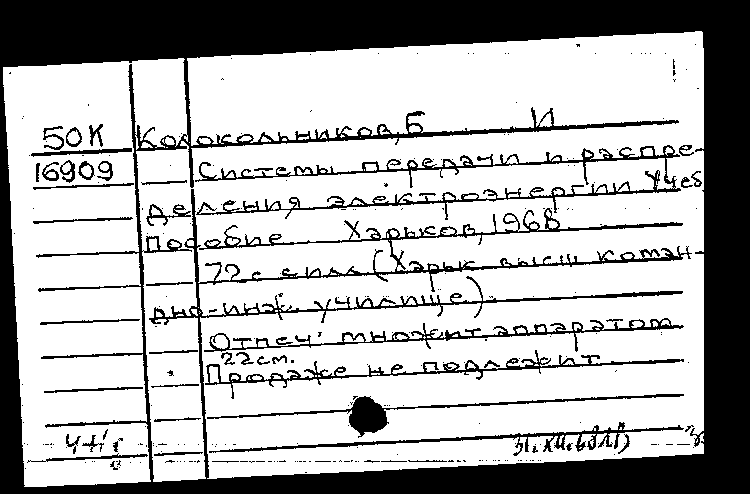 50К Колокольников, Б И
16909 Системы передачи и распре-
деления электроэнергии Учеб
пособие Харьков, 1968
72 с с илл (Харьк высш коман-
дно-инж. училище).
Отпеч. множит. аппаратом
22 см.
Продаже не подлежит